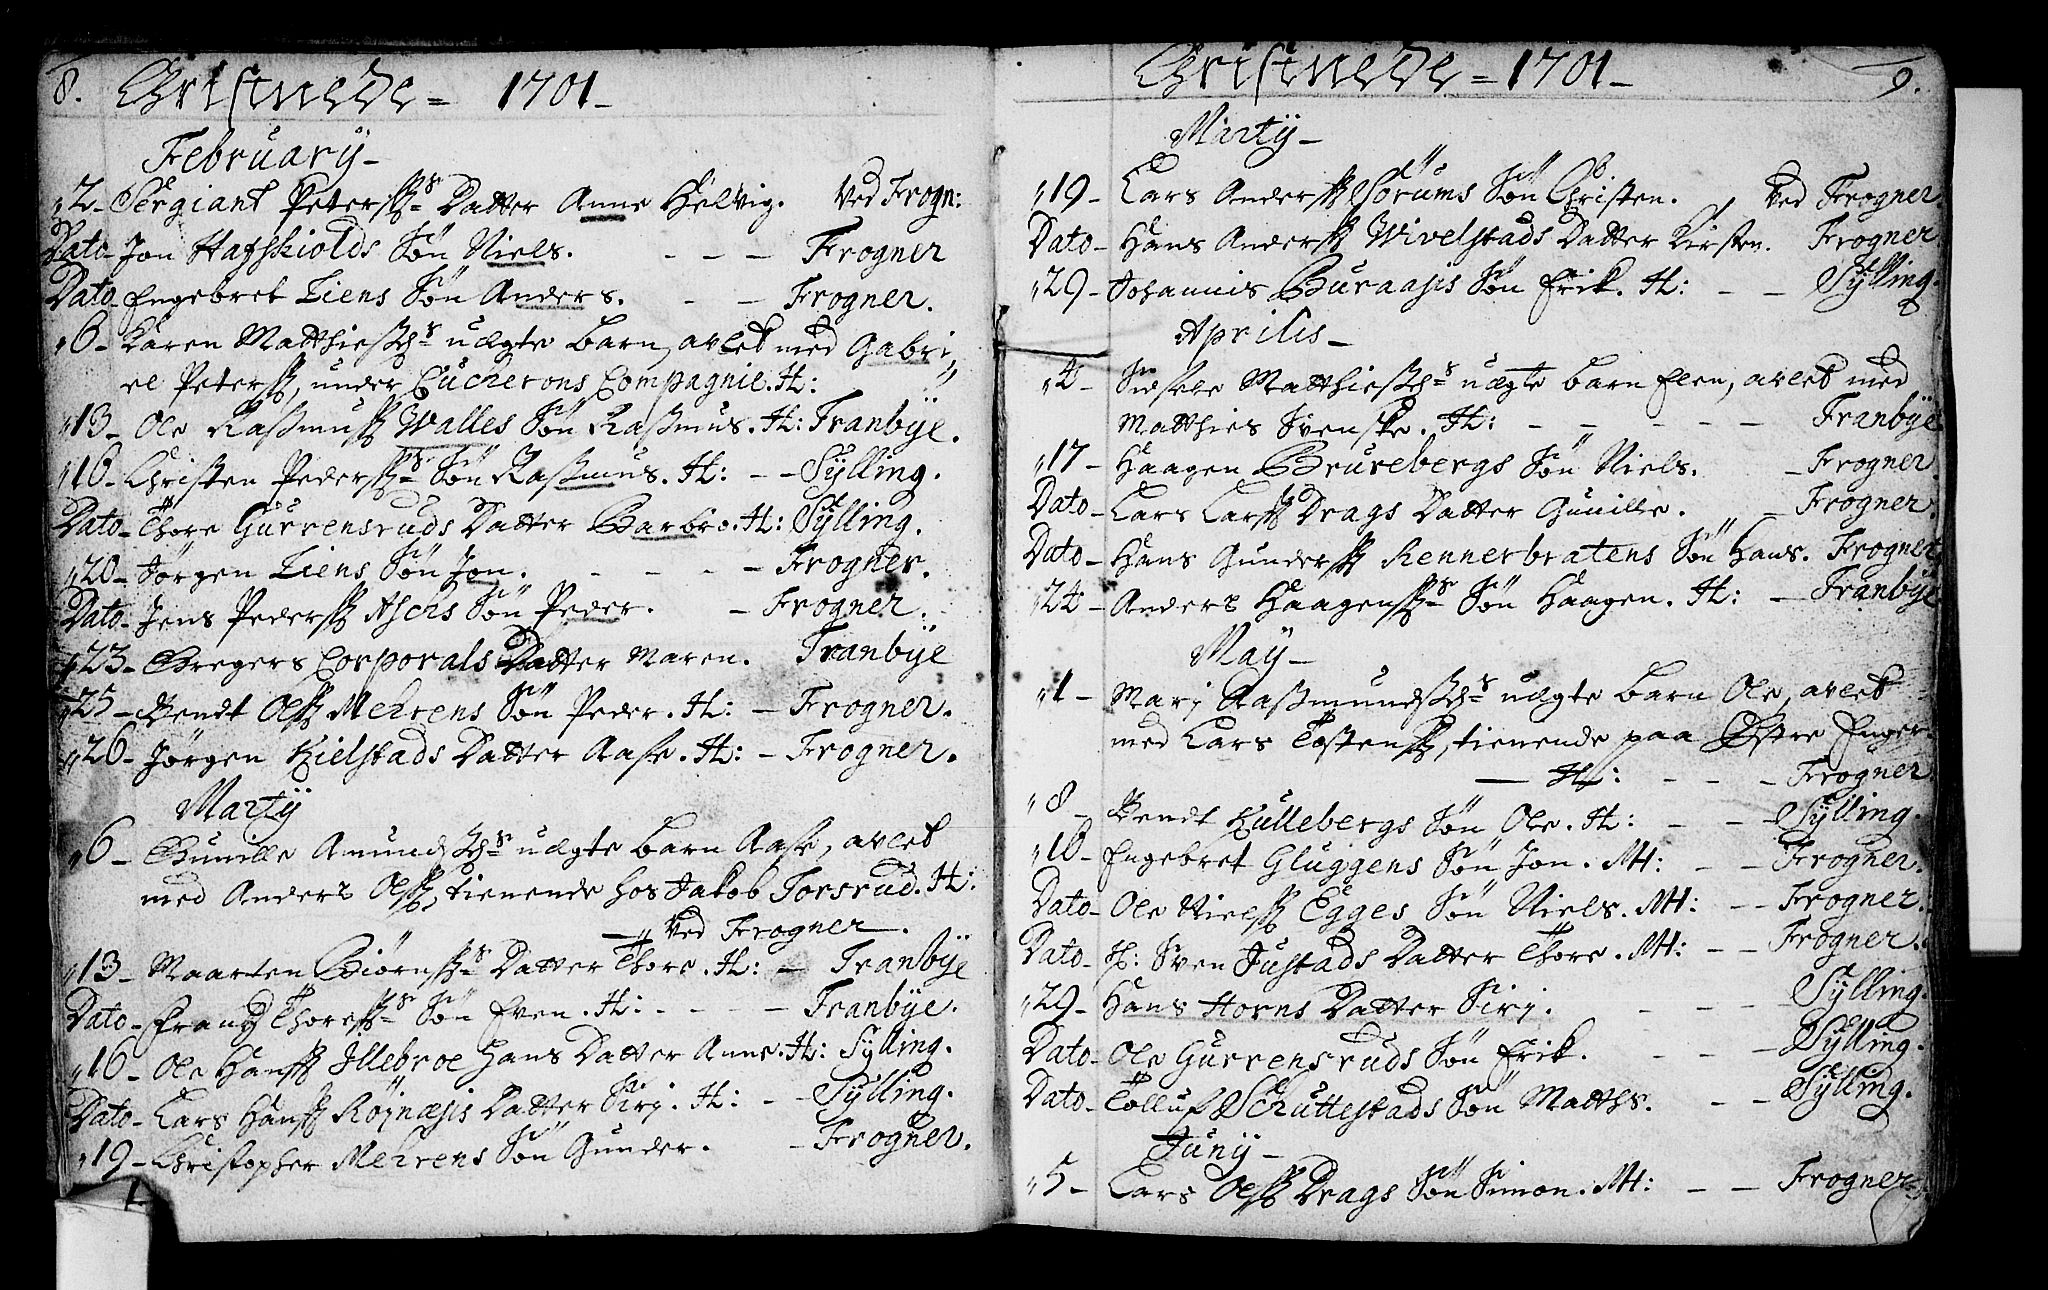 8. Christnede = 1701_
February_
"2_ Sergiant Peterss:s Datter Anne Helvig. Ved Frogn:
Dato_ Jon Hafskiolds Søn Niels. - - - Frogner
Dato_ Engebret Liens Søn Anders. - - Frogner.
"6_ Karen Matthiessd:s uægte barn, avlet med Gabri,
el Peterss, under Cucherons Compagnie. H:
"13_ Ole Rasmuss Walles Søn Rasmus. H: Tranbÿe.
"16_ Christen Pederss:s Søn Rasmus. H: - - Sylling.
Dato_ Thore Gurrensruds Datter Barbro. H: Sylling.
"20_ Jørgen Liens Søn Jon. - - - - Frogner.
Dato_ Jens Pederss Aschs Søn Peder. - Frogner.
"23_ Gregers Corporals Datter Maren. Tranbÿe
"25_ Bendt Olss Mehrens Søn Peder. H: - Frogner.
"26_ Jørgen Kielstads Datter Aase. H: - Frogner.
Martÿ
"6_ Gunille Amundsd:s uægte barn Aase, avlet
med Anders Olss, tienende hos Jakob Torsrud. H:
_"Ved Frogner.
"13_ Maarten Biørnss:s Datter Thore. H: - Tranbÿe
Dato_ Frandz Thoress:s Søn Even. H: - - - - Tranbÿe.
"16_ Ole Hanss Illebroe hans Datter Anne. H: Sylling.
Dato_ Lars Hanss Røjnæsis Datter Sirj. H: - - Sylling.
"19_ Christopher Mehrens Søn Gunder. - Frogner.
Christnede = 1701_ 9.
Martÿ_
"19_ Lars Anderss Sørums Søn Christen. Ved Frogner.
Dato_ Hans Anderss Wivelstads Datter Kirsten. Frogner
"29_ Johannis Buraasis Søn Erik. H: - - Sylling.
Aprilis_
"4_ Sidsele Matthiessd:s uægte barn Elen, avlet med
Matthies Svenske. H: - - - - - Tranbÿe
"17_ Haagen Brurebergs Søn Niels. - Frogner
Dato_ Lars Larss Drags Datter Gunille. - Frogner.
Dato_ Hans Gunderss Rennerbratens Søn Hans. Frogner
"24_ Anders Haagenss:s Søn Haagen. H: - Tranbÿe
Maÿ_
"1_ Marj Aassmundsd:s uægte barn Ole, avlet
med Lars Tostenss, tienende paa Østre Enger.
_ H: - - - Frogner
"8_ Bendt Kullebergs Søn Ole. H: - - Sylling.
"10_ Engebret Gluggens Søn Jon. MH: - - Frogner.
Dato_ Ole Nielss Egges Søn Niels. MH: - - Frogner.
Dato_ Sven Justads Datter Thore. MH: - - Frogner.
"29_ Hans Horns Datter Sirj. - - Sylling.
Dato_ Ole Gurrensruds Søn Erik. - - - Sylling.
Dato_ Tolluf Schuttestads Søn Matths. - - Sylling.
Junÿ_
"5_ Lars Olss Drags Søn Simon. MH: - - Frogner